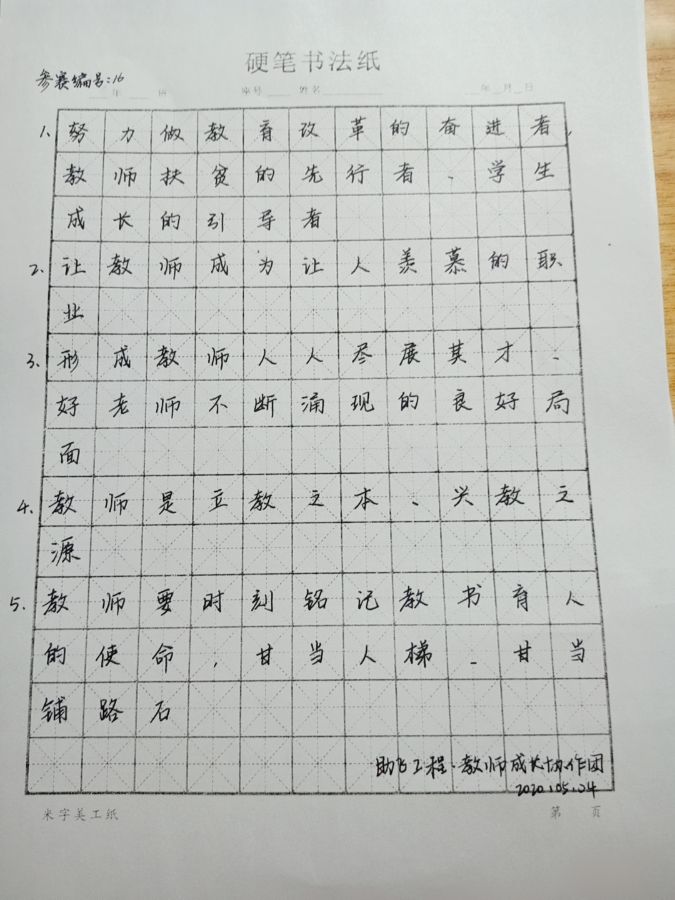 硬笔书法纸
参赛编号:16
年 班 座号 姓名 年 月 日
1、努力做教育改革的奋进者、
教师扶贫的先行者、学生
成长的引导者
2、让教师成为让人羡慕的职
业
3、形成教师人人尽展其才、
好老师不断涌现的良好局
面
4、教师是立教之本、兴教之
源
5、教师要时刻铭记教书育人
的使命,甘当人梯、甘当
铺路石
助飞工程·教师成长协作团
2020.05.24
米字美工纸 第 页